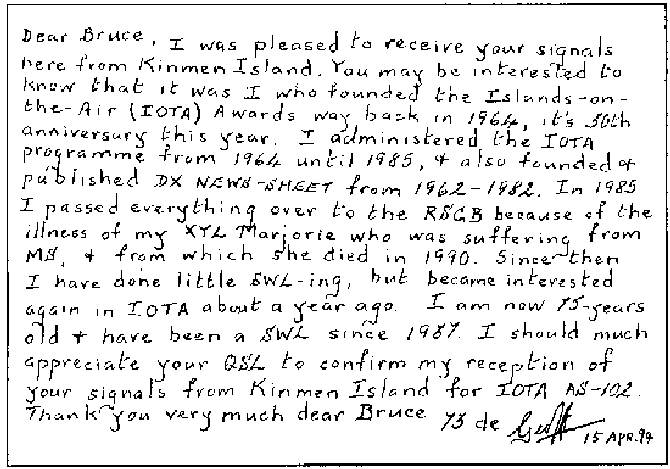 Dear Bruce, I was pleased to receive your signals
here from Kinmen Island. You may be interested to
know that it was I who founded the Islands-on-
the-Air (IOTA) Awards way back in 1964, it's 30th
anniversary this year. I administered the IOTA
programme from 1964 until 1985, & also founded &
published DX NEWS-SHEET from 1962-1982. In 1985
I passed everything over to the RSGB because of the
illness of my XYL Marjorie who was suffering from
MS, & from which she died in 1990. Since then
I have done little SWL-ing, but became interested
again in IOTA about a year ago. I am now 75-years
old & have been a SWL since 1937. I should much
appreciate your QSL to confirm my reception of
your signals from Kinmen Island for IOTA AS-102.
Thank you very much dear Bruce 73 de
15 APR.94